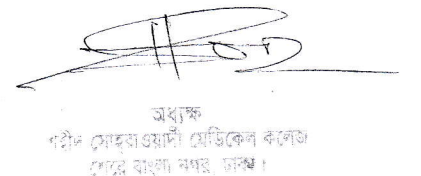 অধ্যক্ষ
শহীদ সোহরাওয়ার্দী মেডিকেল কলেজ
শেরে বাংলা নগর, ঢাকা।